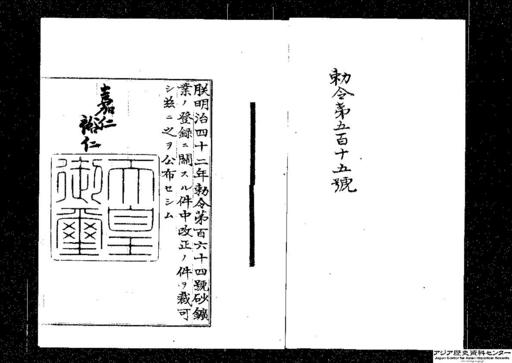 勅令第五百十五號
朕明治四十二年勅令第百六十四號砂鑛
業ノ登録ニ關スル件中改正ノ件ヲ裁可
シ玆ニ之ヲ公布セシム
嘉仁
裕仁
天皇
御璽
アジア歴史資料センター
Japan Center for Asian Historical Records